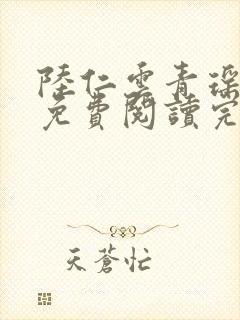 陸仁雲青瑤
免費閱讀完
天蒼忙